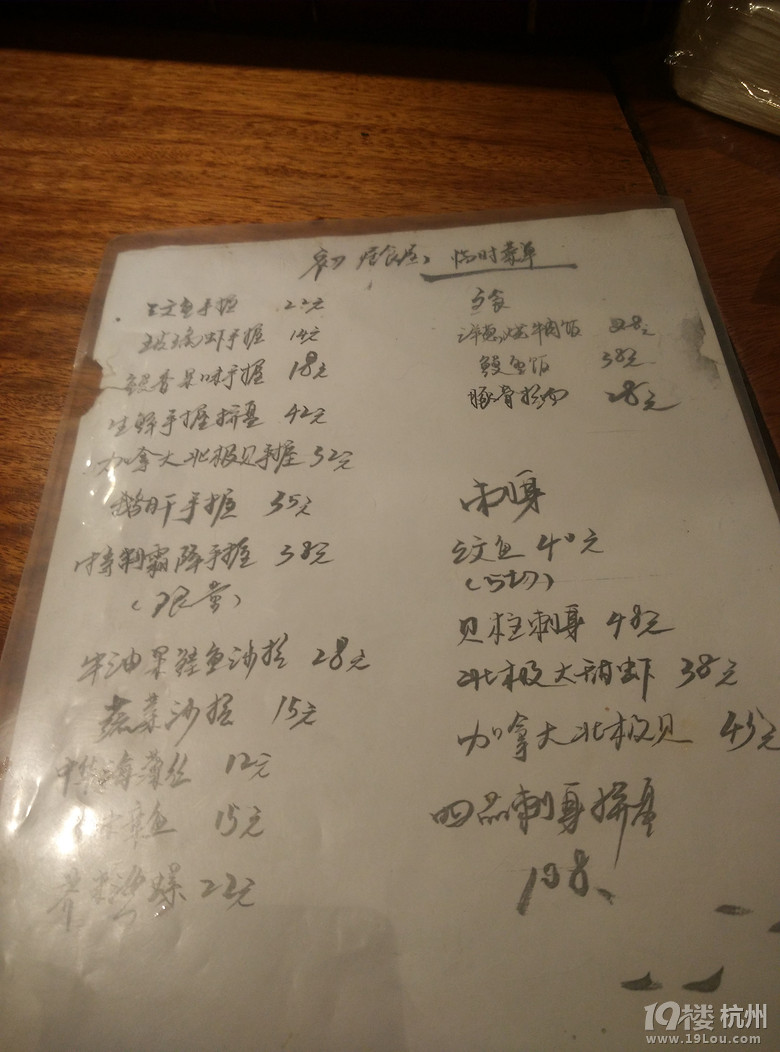 居食屋, 临时菜单
三文鱼手握 22元
玻璃虾手握 14元
手握 18元
生鲜手握拼盘 42元
加拿大北极贝手握 32元
鹅肝手握 35元
特制霜降手握 38元
(限量)
牛油果鲑鱼沙拉 28元
蔬菜沙拉 15元
中华海藻丝 12元
章鱼 15元
芥末 22元
主食
洋葱烧牛肉饭 28元
鳗鱼饭 38元
豚骨拉面 28元
刺身
三文鱼 40元
(厚切)
贝柱刺身 48元
北极大甜虾 38元
加拿大北极贝 45元
四品刺身拼盘
198、
19楼 杭州
www.19Lou.com